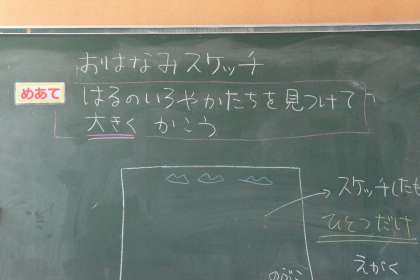 おはなみスケッチ
めあて
はるのいろやかたちを見つけて
大きく かこう
スケッチしたも
ひとつだけ
えがく
のぶこ